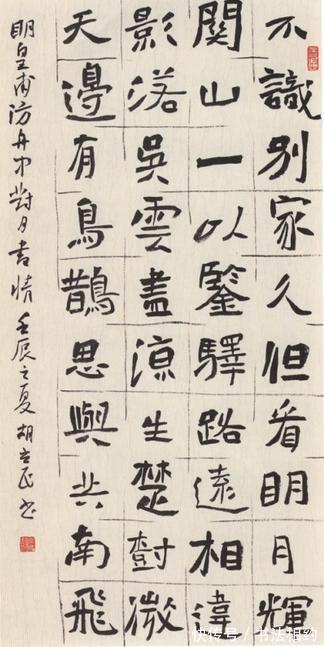 不識別家久但看明月輝
関山一以鑒驛路遠相違
影落吳雲盡涼生楚樹微
天邊有鳥鵲思與共南飛
明皇甫汸舟中對月書情 壬辰之夏 胡立民書
快传号 / 书法相约